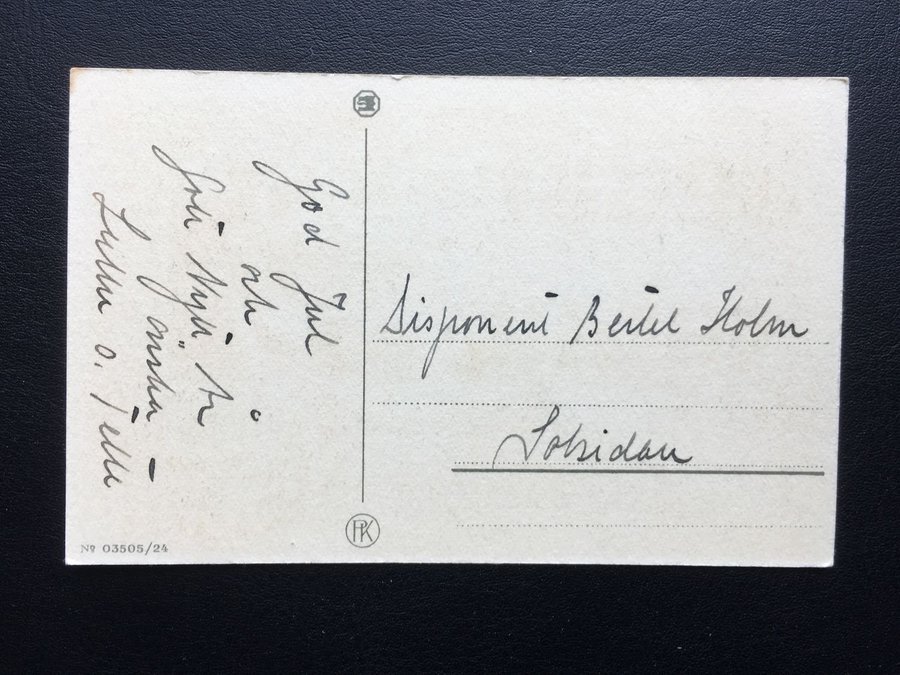 God Jul
och
Gott Nytt År
önska
Lulle o. Jelle
Disponent Bertel Holm
Solsidan
PK
Nº 03505/24